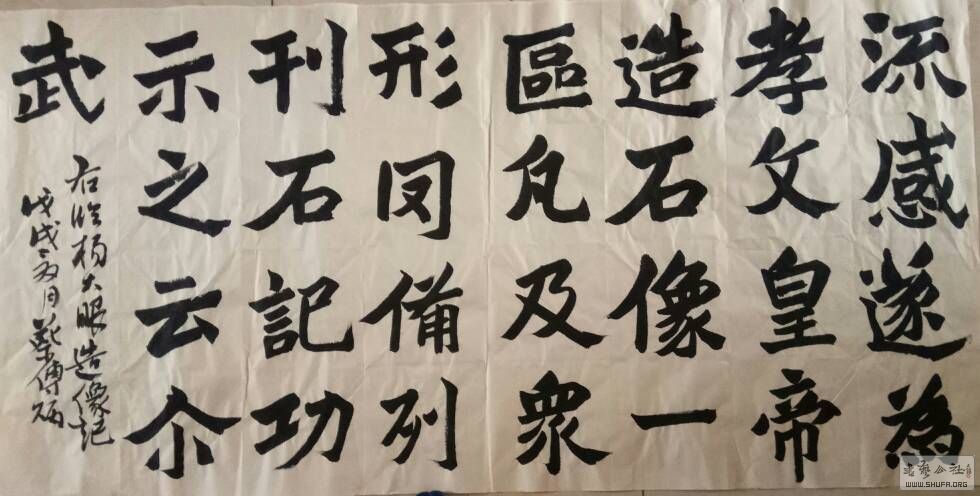 流感遂為
孝文皇帝
造石像一
區凡及衆
形罔備列
刊石記功
示之云尒
武
右臨楊大眼造像記
戊戌月
書藝公社
WWW.SHUFA.ORG